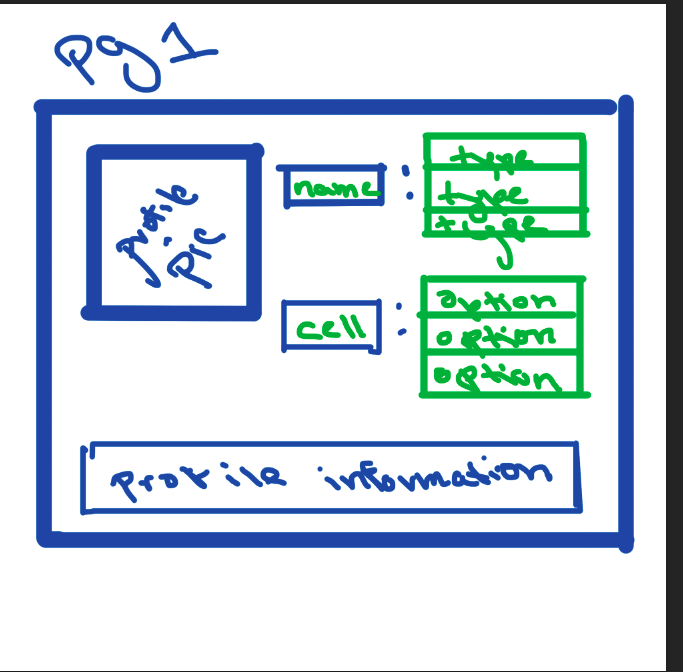 pg 1
profile pic
name :
type
type
type
cell :
option
option
option
profile information